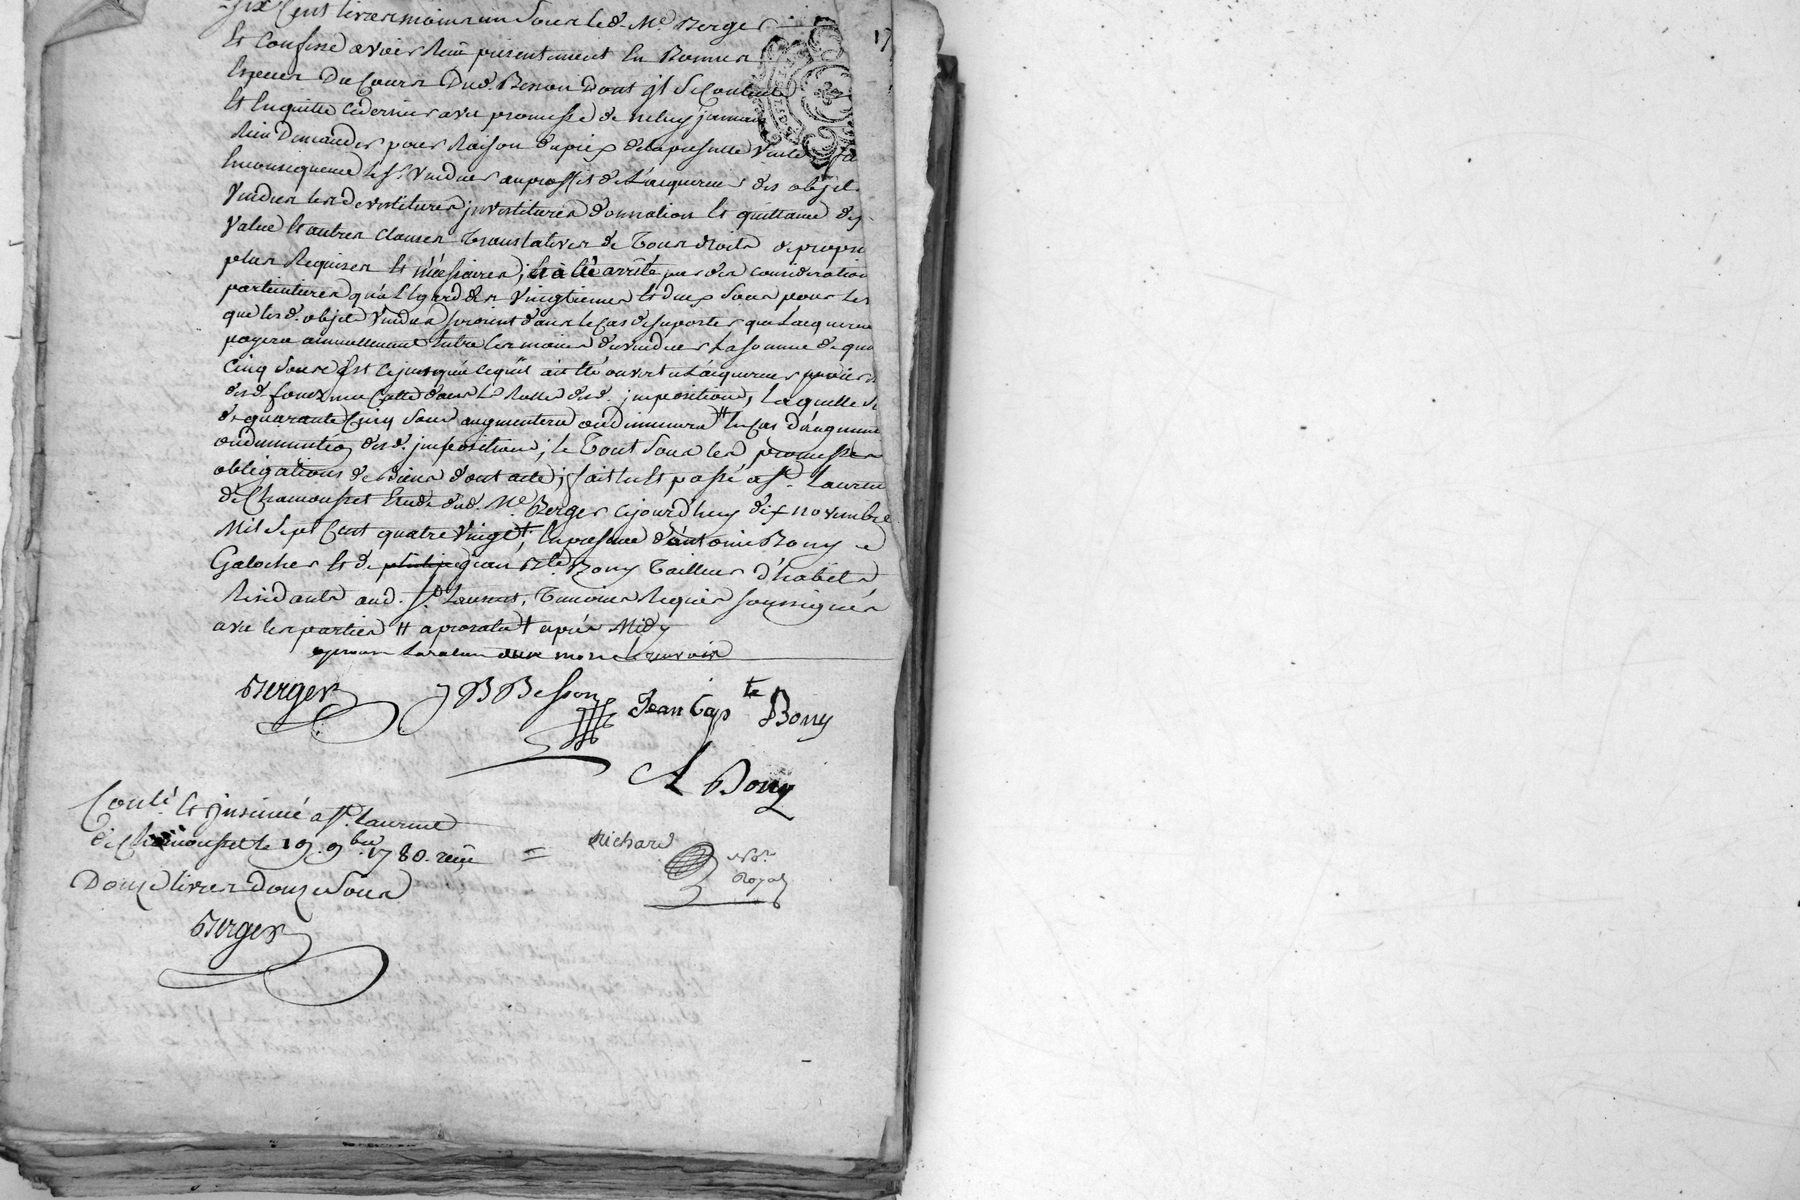 Six Cent livres moins un Sous led. Me. Berger
Et Confesse avoir Reçu présentement En Bonnes
Especes Du Cours Dud. Besson Dont jl Se Contente
Et En quitte ce dernier avec promesse de ne luy jamais
Rien Demander pour Raison du prix de la presente Vente
En consequence le Sr. Vendeur au proffit de L'acquereur des objets
Vendus les devestitures jnvestitures donnation Et quittance de plus
Value Et autres clauses Translatives de Tous droits de propri
plus Requises Et nécessaires; Et a été arrêté par des considerations
particulieres qu'a L'Egard des Vingtiemes Et deux Sous pour Les
que lesd. objets Vendus seroient dans le Cas de suporter que L'acquereur
payera annuellement Entre les mains du vendeur La somme de qua
Cinq Sous Et ce jusqu'a ce qu'il ait été ouvert a L'acquereur
desd. fonds une Cotte dans Le Rolle desd. jmpositions, Laquelle
de quarante Cinq Sous augmentera ou diminuera En Cas d'augmen
ou diminution desd. jmpositions; le Tout Sous les promesses
obligations de Biens dont acte; fait lu Et passé a St. Laurent
de Chamousset Etude dud. Me. Berger cejourd'huy dix novembre
Mil Sept Cent quatre Vingt, En presence d'antoine Bony
Galocher Et de philipe jean Bte. Bony Tailleur d'habits
Residants aud. St. Laurent, Temoins Requis soussignés
avec les parties # aprouvé † après Midy
aprouvé La rature deux mots Et renvoir
Berger
J B Besson
Jean Bap te Bony
A Bony
Conlé. Et jnsinué a St. Laurent
de Chamousset le 19. 9bre. 1780. reçu
Douze livres Douze Sous
=
Richard
Nore.
Royal
Berger